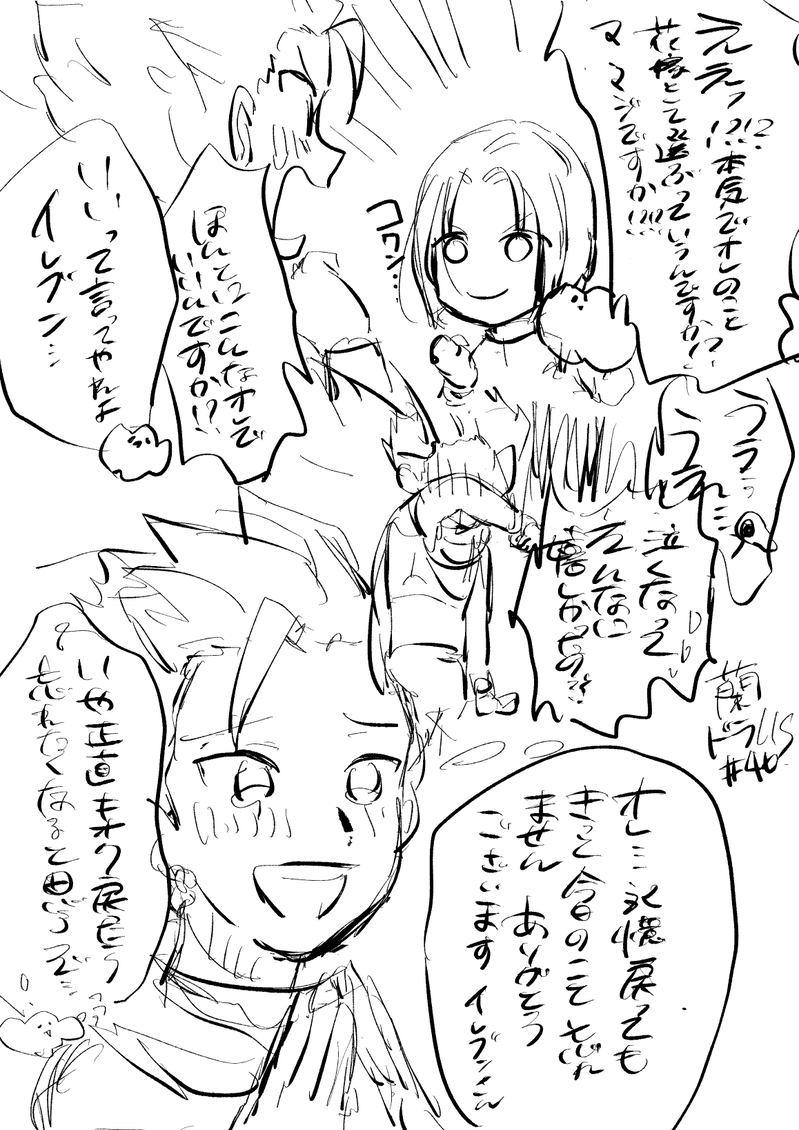 ええっ!?!?本気でオレのこと
花嫁として選ぶっていうんですか!?
マ
マジですか!?!?
コクン…
ほんとにこんなオレで
いいんですか!?
いいって言ってやれよ
イレブン…
うう…
うう…
泣くなって
そんなに
嬉しかったの?
オレ…記憶戻っても
きっと今日のこと忘れ
ません ありがとう
ございます イレブンさん
いや正直キオク戻ったら
忘れたくなると思うぞ…
#40